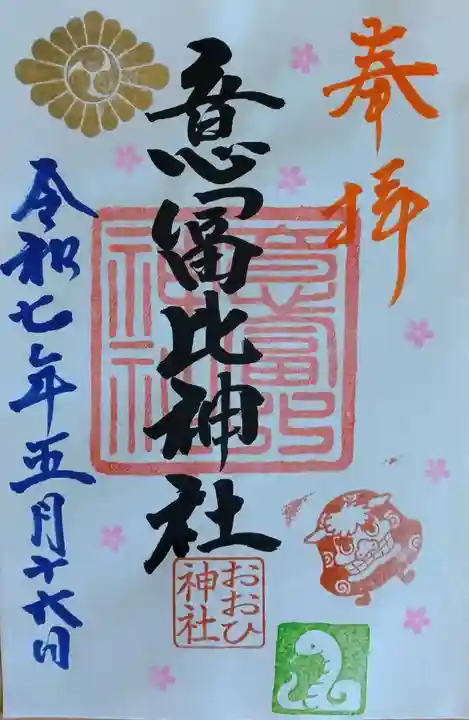 奉拝
意冨比神社
意富比
神社
おおひ
神社
令和七年五月十六日